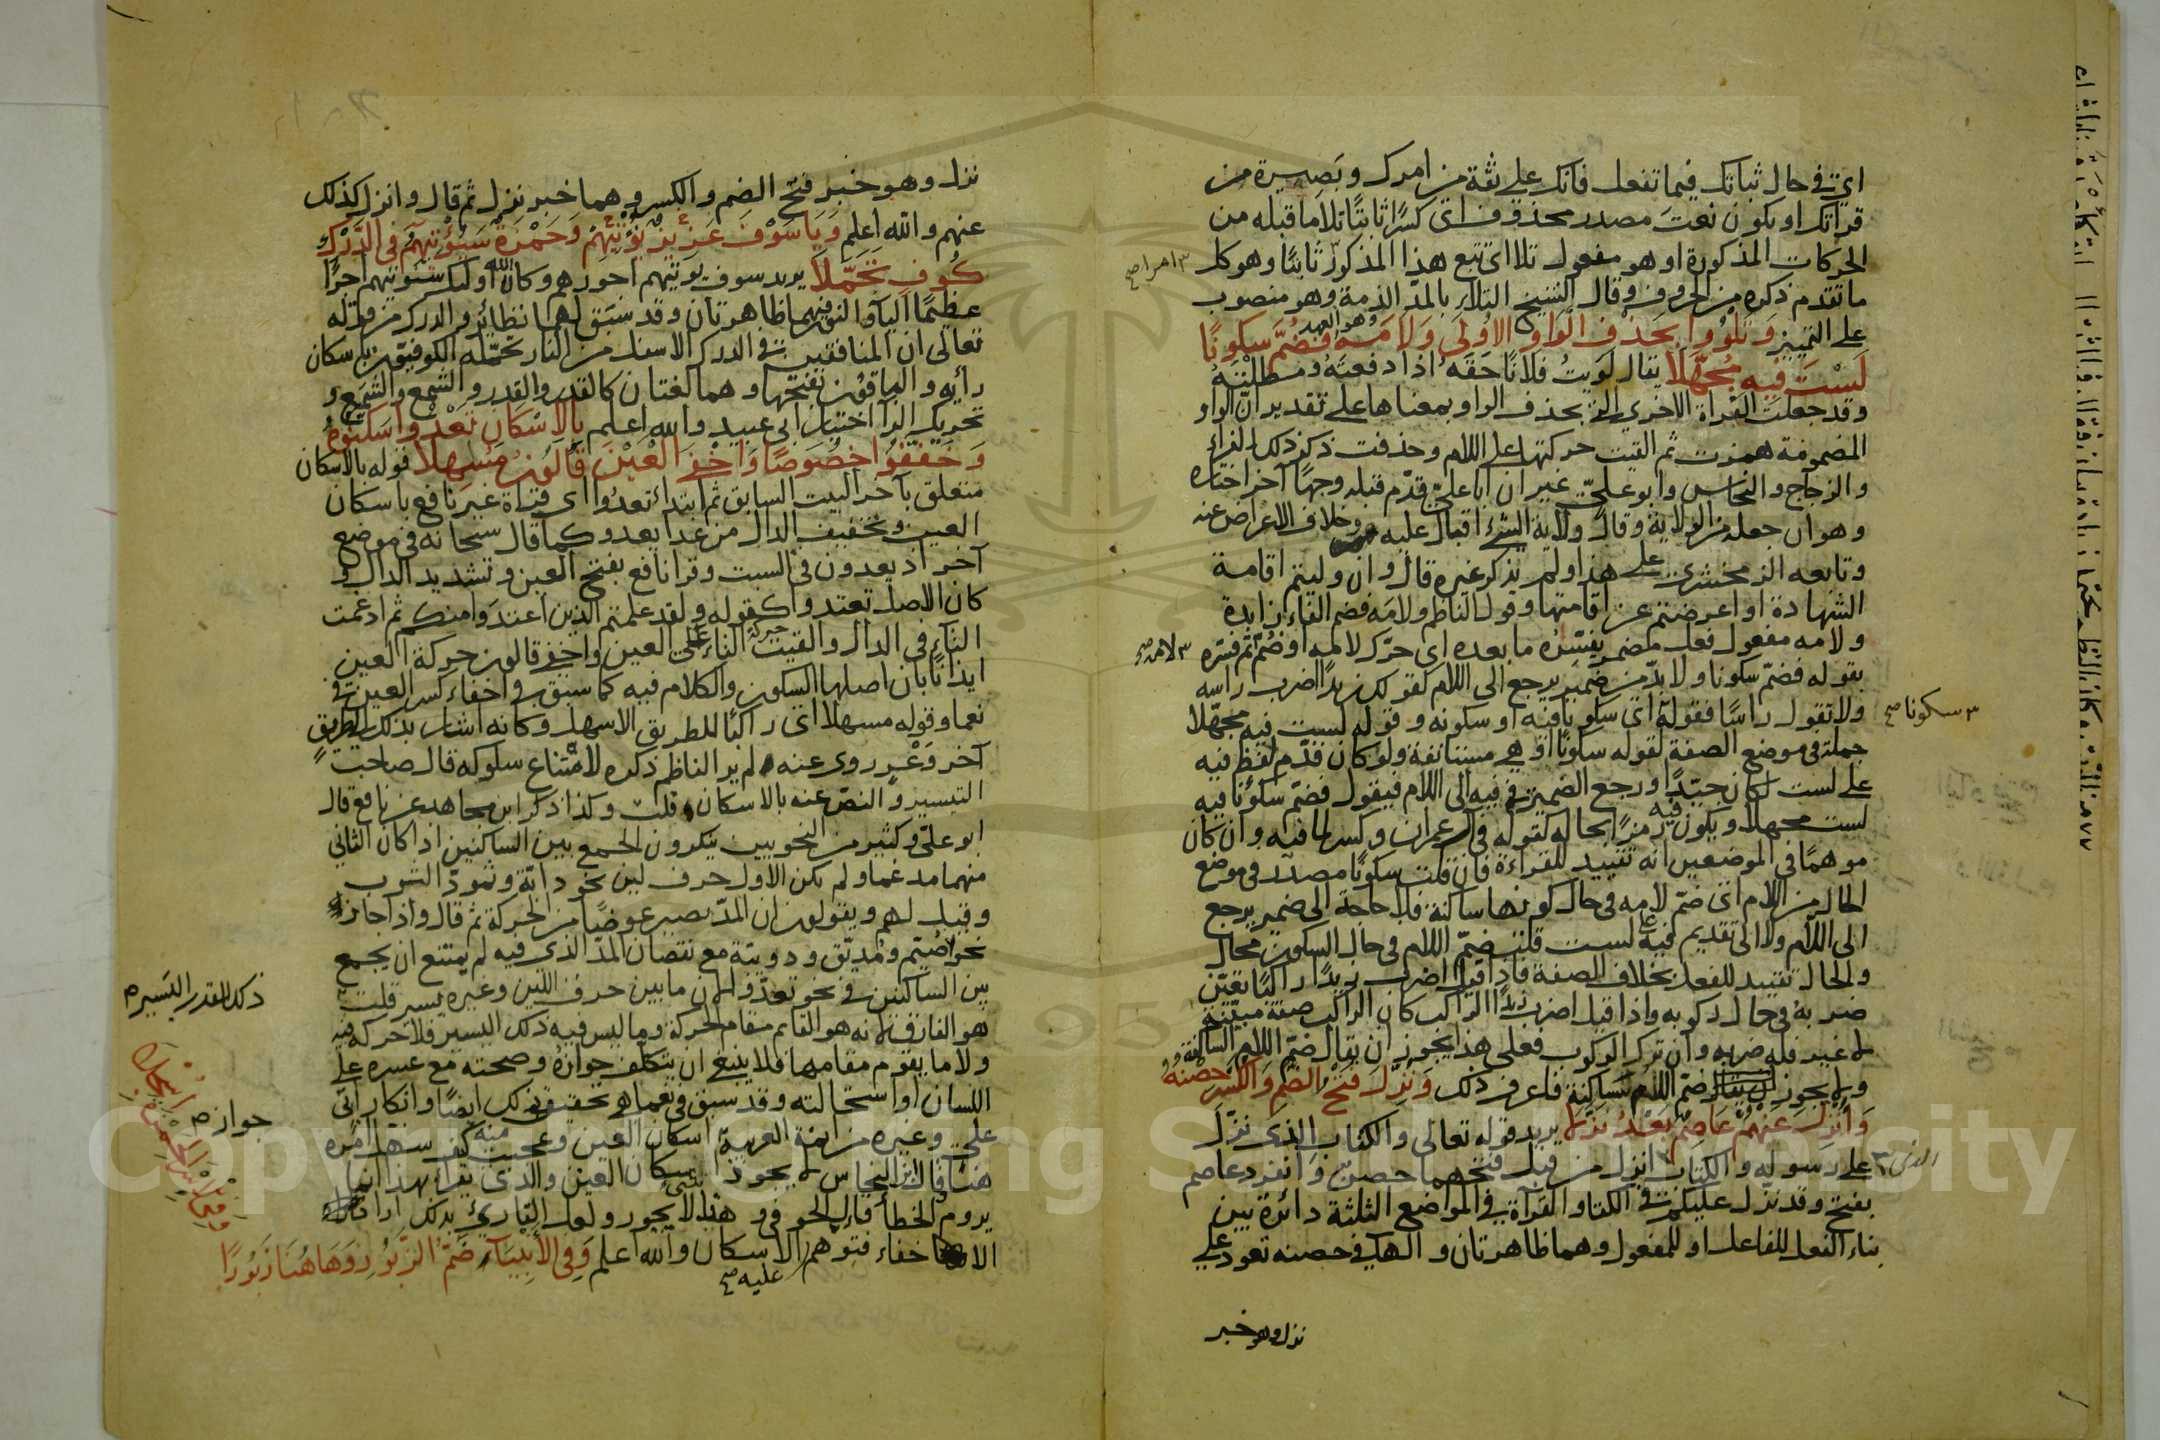 اي في حال ثباتك فيما تفعل فانك على ثقة من امرك وبصيرة من
قراتك او يكون نعت مصدر محذوف اى كسرا ثابتا تلا ما قبله من
الحركات المذكورة او هو مفعول تلا اى تتبع هذا المذكور ثابتا وهو كل
ما تقدم ذكره من الحروف وقال الشيخ التلاء بالمد الذمة وهو منصوب
على التمييز وَتَلْوُوا بحذف الواو الاولى ولامه فضم سكونا
وهو العهد
لست فيه مجهلا يقال لويت فلانا حقه اذا دفعته ومطلته به
وقد جعلت القراة الاخرى التي بحذف الواو بمعناها على تقدير ان الواو
المضمومة همزت ثم القيت حركتها على اللام وحذفت ذكر ذلك الفراء
والزجاج والنحاس وابو علي غير ان ابا علي قدم قبله وجها آخر اختاره
وهو ان جعله من الولاية وقال ولاية الشئ اقبال عليه وخلاف الاعراض عنه
وتابعه الزمخشري على هذا ولم يذكر غيره قال وان وليتم اقامة
الشهادة او اعرضتم عن اقامتها وقول الناظم ولامه فضم الفاء زايدة
ولامه مفعول فعل مضمر يفسره ما بعده اى حرك لامه او ضم ثم فسره
بقوله فضم سكونا ولا بد من ضمير يرجع الى اللام كقولك زيدا اضرب راسه
ولا تقول راسا فقوله اى سكونا فيه او سكونه وقوله لست فيه مجهلا
سكونا صح
جملة في موضع الصفة لقوله سكونا او هي مستانفة ولو كان قدم لفظ فيه
على لست لكان جيدا ورجع الضمير في فيه الى اللام فيقول فضم سكونا فيه
لست مجهلا ويكون فيه رمزا بحاله كقوله في آل عمران وكسر لما فيه وان كان
موهما في الموضعين انه تقييد للقراءة فان قلت سكونا مصدر في موضع
الحال من اللام اى ضم لامه في حال كونها ساكنة فلا حاجة الى ضمير يرجع
الى اللام ولا الى تقديم فيه على لست قلت ضم اللام في حال السكون محال
والحال تقييد للفعل بخلاف الصفة فاذا قيل اضرب زيدا راكبا تعين
ضربه في حال ركوبه واذا قيل اضرب زيدا الراكب كان الراكب صفة مبينة
له غير فله ضربه وان ترك الركوب فعلى هذا يجوز ان يقال ضم اللام الساكنة
ولا يجوز ان يقال ضم اللام ساكنة فاعرف ذلك وَنُزِّلَ فتح الضم والكسر حصنه
وَأُنْزِلَ عنهم عاصم بعد نزلا يريد قوله تعالى والكتاب الذى نزل
على رسوله والكتاب انزل من قبل فتحهما حصن وانفرد عاصم
الذى
بفتح وقد نزل عليكم في الكتاب والقرآة في المواضع الثلثة دائرة بين
بناء الفعل للفاعل او للمفعول وهما ظاهرتان والهاء في حصنه تعود على
نزل وهو خبر
نزل وهو خبر فتح الضم والكسر وهما خبر نزل ثم قال وانزل كذلك
عنهم والله اعلم ويا سوف نؤتيهم عزيز وحمزة سيؤتيهم في الدرك
كوف تحملا يريد سوف يؤتيهم اجورهم وكان الله اولئك سنؤتيهم اجرا
عظيما الياء والنون فيهما ظاهرتان وقد سبق لهما نظائر والدرك من قوله
تعالى ان المنافقين في الدرك الاسفل من النار تحمله الكوفيون باسكان
رايه والباقون بفتحها وهما لغتان كالقدر والقدر والشمع والشمع و
تحريك الرا اختيار ابي عبيد والله اعلم بالاسكان تعدوا سكنوه
وخففوا خصوصا واخفى العين قالون مسهلا قوله بالاسكان
متعلق بآخر البيت السابق ثم ابتدا تعدوا اى قراة غير نافع باسكان
العين وتخفيف الدال من عدا يعدو كما قال سبحانه في موضع
آخر اذ يعدون في السبت وقرا نافع بفتح العين وتشديد الدال و
كان الاصل تعتدوا كقوله ولقد علمتم الذين اعتدوا منكم ثم ادغمت
التاء في الدال والقيت حركة التاء على العين واخفى قالون حركة العين
ايذانا بان اصلها السكون والكلام فيه كما سبق في اخفاء كسر العين في
نعما وقوله مسهلا اى راكبا للطريق الاسهل وكانه اشار بذلك الى طريق
آخر وعر روى عنه لم ير الناظم ذكره لامتناع سلوكه قال صاحب
التيسير والنص عنه بالاسكان قلت وكذا ذكر ابن مجاهد عن نافع قال
ابو على وكثير من النحويين ينكرون الجمع بين الساكنين اذا كان الثاني
منهما مدغما ولم يكن الاول حرف لين نحو دابة وتمود الثوب
وقيل لهم ويقولون ان المد يصير عوضا من الحركة ثم قال واذا جاز
نحو اصيم ومديق ودويبة مع نقصان المد الذى فيه لم يمتنع ان يجمع
بين الساكنين في نحو تعدوا لان ما بين حرف اللين وغيره يسير قلت
ذلك القدر اليسير م
هو الفارق لانه هو القائم مقام الحركة وما ليس فيه ذلك اليسير فلا حركة فيه
ولا ما يقوم مقامها فلا ينبغي ان يتكلف جوازه وصحته مع عسره على
اللسان او استحالته وقد سبق في نعما هي تحقيق ذلك ايضا وانكار ابي
جوازه م
على وغيره من ايمة العربية اسكان العين وعجبت منه كيف سهل امره
هنا قال النحاس لا يجوز اسكان العين والذى يقرا بهذا انما
يروم الخطأ قال الحوفي وهذا لا يجوز ولعل القارئ بذلك اراد
الاخفاء فتوهم عليه الاسكان والله اعلم وفي الانبياء ضم الزبور وهاهنا زبورا
عليه صح